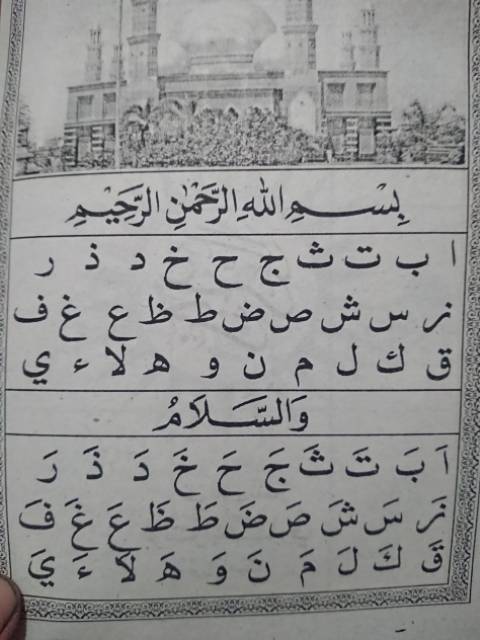 بِسْمِ اللهِ الرَّحْمٰنِ الرَّحِيْمِ
ا ب ت ث ج ح خ د ذ ر
ز س ش ص ض ط ظ ع غ ف
ق ك ل م ن و ه لا ء ي
وَالسَّلَامُ
اَ بَ تَ ثَ جَ حَ خَ دَ ذَ رَ
زَ سَ شَ صَ ضَ طَ ظَ عَ غَ فَ
قَ كَ لَ مَ نَ وَ هَ لَا ءَ يَ